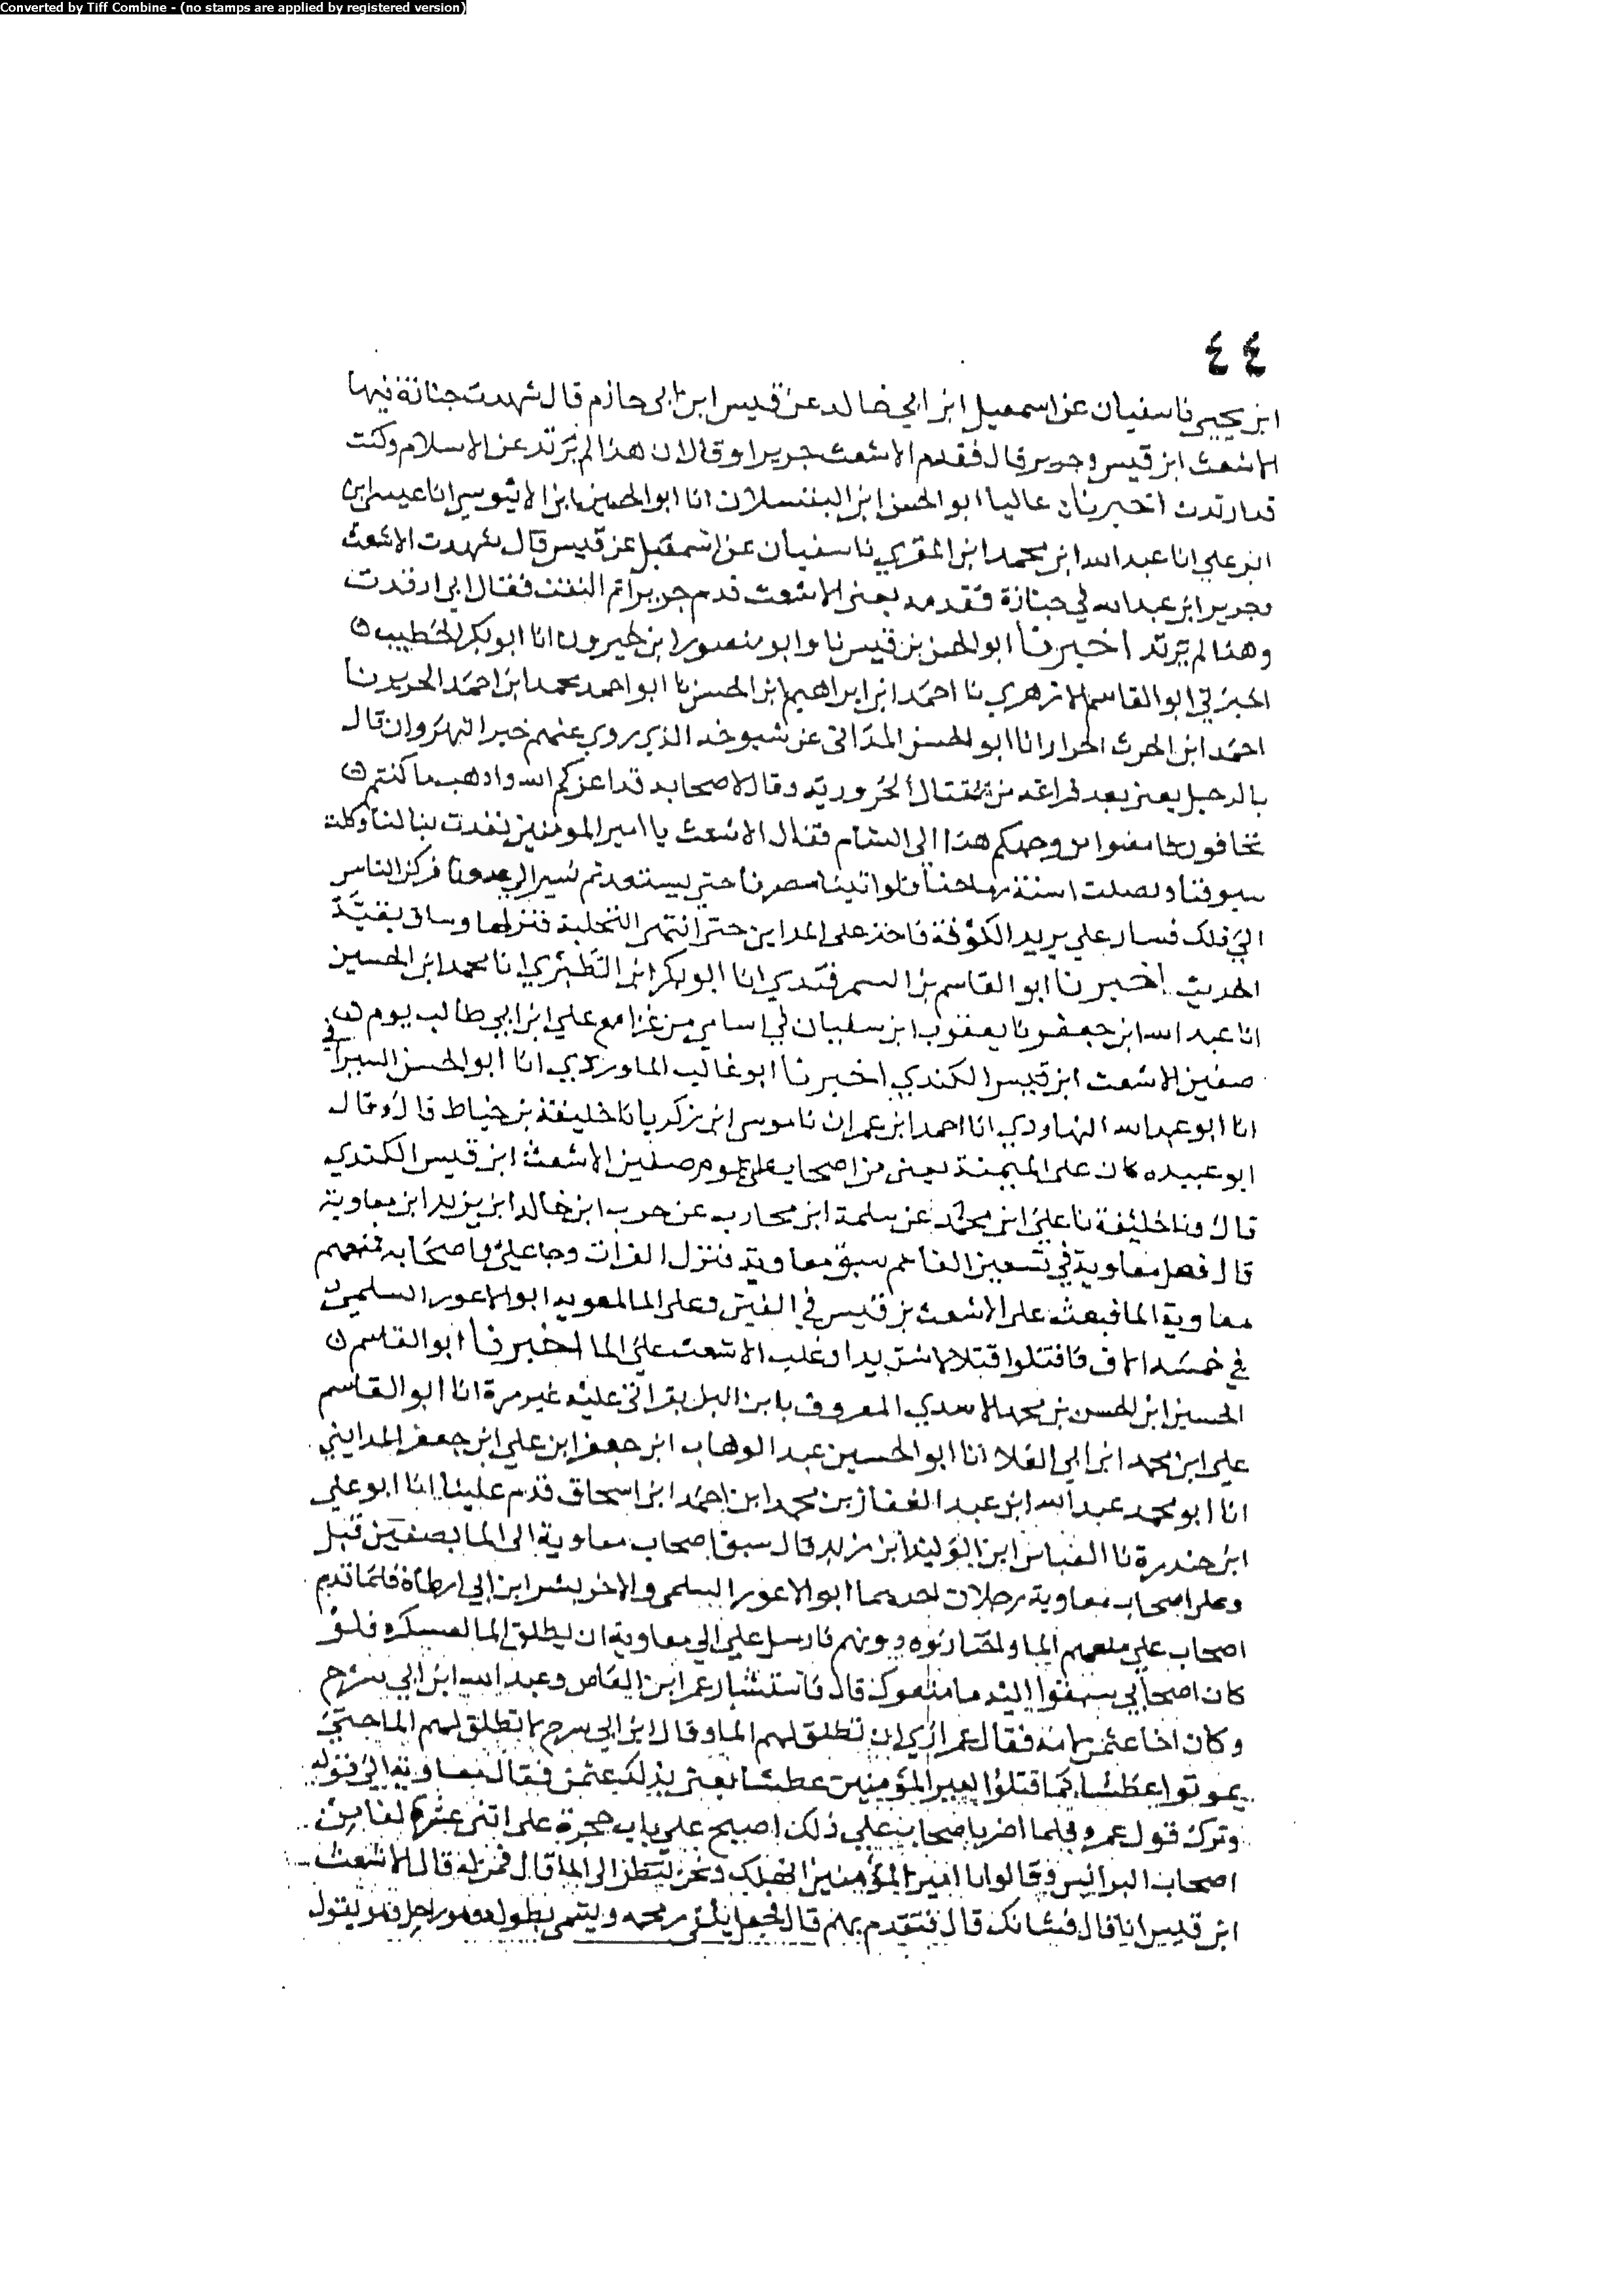 Converted by Tiff Combine - (no stamps are applied by registered version)
٤٤
ابن يحيى نا سفيان عن اسمعيل ابن ابي خالد عن قيس ابن ابى حازم قال شهدت جنازة فيها
الاشعث ابن قيس وجرير قال فقدم الاشعث جريرا وقال ان هذا لم يرتد عن الاسلام وكنت
قد ارتددت اخبرناه عاليا ابو الحسن ابن انا ابو الحسين ابن انا عيسى ابن
ابن علي انا عبد الله ابن محمد ابن المقري نا سفيان عن اسمعيل عن قيس قال شهدت الاشعث
وجرير ابن عبد الله في جنازة فقدمه يعنى الاشعث قدم جريرا ثم التفت فقال اني ارتددت
وهذا لم يرتد اخبرنا ابو الحسن بن قيس نا وابو منصور ابن خيرون انا ابو بكر الخطيب
اخبرني ابو القاسم الازهري نا احمد ابن ابراهيم ابن الحسن نا ابو احمد محمد ابن احمد نا
احمد ابن الحرث انا ابو الحسن عن شيوخه الذي روي عنهم خبر النهروان قال
يعنى بعد فراغه من الحرورية وقال لاصحابه قد اعزكم الله واذهب ما كنتم
تخافون فامضوا من وجهكم هذا الى الشام فقال الاشعث يا امير المومنين نفدت نبالنا وكلت
سيوفنا ونصلت اسنة رماحنا فلو اتينا مصرنا حتى نستعد ثم نسير الى عدونا فركن الناس
الى ذلك فسار علي يريد الكوفة فاخذ على المداين حتى انتهى النخيلة فنزلها وساق بقية
الحديث اخبرنا ابو القاسم بن السمرقندي انا ابو بكر ابن الطبري انا محمد ابن الحسين
انا عبد الله ابن جعفر نا يعقوب ابن سفيان في اسامي من غزا مع علي ابن ابي طالب يوم
صفين الاشعث ابن قيس الكندي اخبرنا ابو غالب الماوردي انا ابو الحسن السيرافي
انا ابو عبد الله النهاوندي انا احمد ابن عمران نا موسى ابن زكريا نا خليفة بن خياط قال وقال
ابو عبيده كان على الميمنة يعنى من اصحاب علي يوم صفين الاشعث ابن قيس الكندي
قال ونا خليفة نا علي ابن محمد عن سلمة ابن محارب عن حرب ابن خالد ابن يزيد ابن معاوية
قال فصل معاوية في تسعين الفا ثم سبق معاوية فنزل الفرات وجا علي واصحابه فمنعهم
معاوية الما فبعث علي الاشعث بن قيس في الفين وعلى الما لمعوية ابو الاعور السلمي
في خمسة الاف فاقتتلوا قتالا شديدا وغلب الاشعث على الما اخبرنا ابو القاسم
الحسين ابن الحسن بن محمد الاسدي المعروف بابن البن بقراتي عليه غير مرة انا ابو القاسم
علي ابن محمد ابن ابي العلا انا ابو الحسين عبد الوهاب ابن جعفر ابن علي ابن جعفر المدايني
انا ابو محمد عبد الله ابن عبد الغفار بن محمد ابن احمد ابن اسحاق قدم علينا انا ابو علي
ابن حندرة نا العباس ابن الوليد ابن مزيد قال سبق اصحاب معاوية الى الما بصفين قبل
وعلى اصحاب معاوية رجلان احدهما ابو الاعور السلمى والاخر بشر ابن ابي ارطاة فلما قدم
اصحاب علي منعهم الما دونهم فارسل علي الي معاوية ان يطلق الما لعسكره فلو
كان اصحابي سبقوا اليه ما منعوك قال فاستشار عمر ابن العاص وعبد الله ابن ابي سرح
وكان اخا عثمن لامه فقال عمر ارى ان تطلق لهم الما وقال ابن ابي سرح لا تطلق لهم الما حتى
يموتوا عطشا كما قتلوا امير المؤمنين عطشا يعنى بذلك عثمن فقال معاوية الى قوله
وترك قول عمرو فلما اضر باصحاب علي ذلك اصبح على باب حجرة علي اثنى عشر الفا من
اصحاب البرانس وقالوا يا امير المؤمنين انهلك ونحن ننظر الى الما قال فمن له قال الاشعث
ابن قيس انا قال فشانك قال فتقدم بهم قال فجعل يلقى رمحه ويتمى بطوله وهو راجل وهو يقول